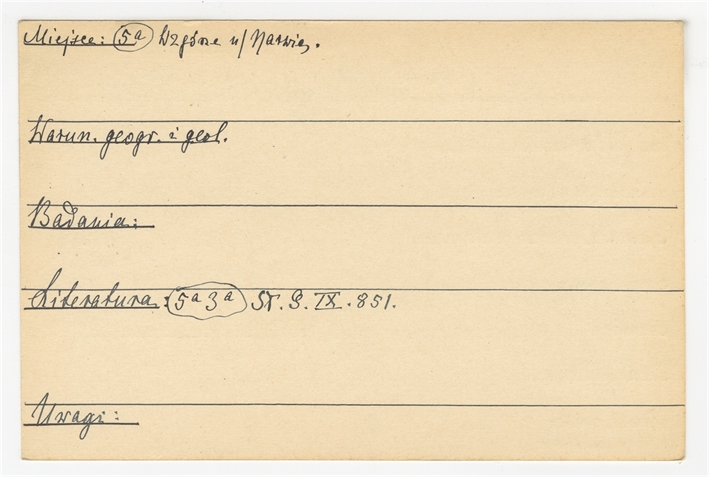 Miejsce: 5a Wzgórze n/ Narwią.
Warun. geogr. i geol.
Badania:
Literatura: 5a3a Sł. G. IX. 851.
Uwagi: